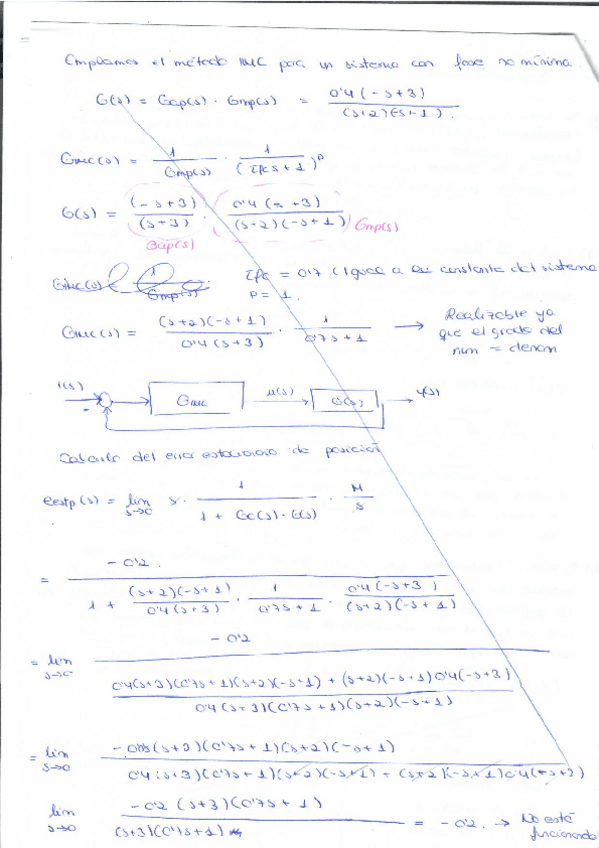 Empleamos el método IMC para un sistema con fase no mínima.
G(s) = Gap(s) · Gmp(s) = 0'4 (-s+3) / (s+2)(-s+1).
Gimc(s) = 1 / Gmp(s) · 1 / (τfc s + 1)^p
G(s) = (-s+3) / (s+3) · 0'4 (s+3) / (s+2)(-s+1) Gmp(s)
Gap(s)
Gimc(s) = 1 / Gmp(s) τfc = 0'7 (Igual a la constante del sistema
p = 1.
Gimc(s) = (s+2)(-s+1) / 0'4 (s+3) · 1 / 0'7s+1 → Realizable ya
que el grado del
num = denom
r(s) - Gimc u(s) G(s) y(s)
Calculo del error estacionario de posición
eestp(s) = lim s→0 s · 1 / 1 + Gc(s)·G(s) · M / s
= -0'2. / 1 + (s+2)(-s+1) / 0'4(s+3) · 1 / 0'7s+1 · 0'4(-s+3) / (s+2)(-s+1)
= lim s→0 -0'2 / 0'4(s+3)(0'7s+1)(s+2)(-s+1) + (s+2)(-s+1)0'4(-s+3) / 0'4(s+3)(0'7s+1)(s+2)(-s+1)
= lim s→0 (s+3)(0'7s+1)(s+2)(-s+1) / 0'4(s+3)(0'7s+1)(s+2)(-s+1) + (s+2)(-s+1)0'4
lim s→0 -0'2 (s+3)(0'7s+1) / (s+3)(0'7s+1) = -0'2. → No está
funcionando